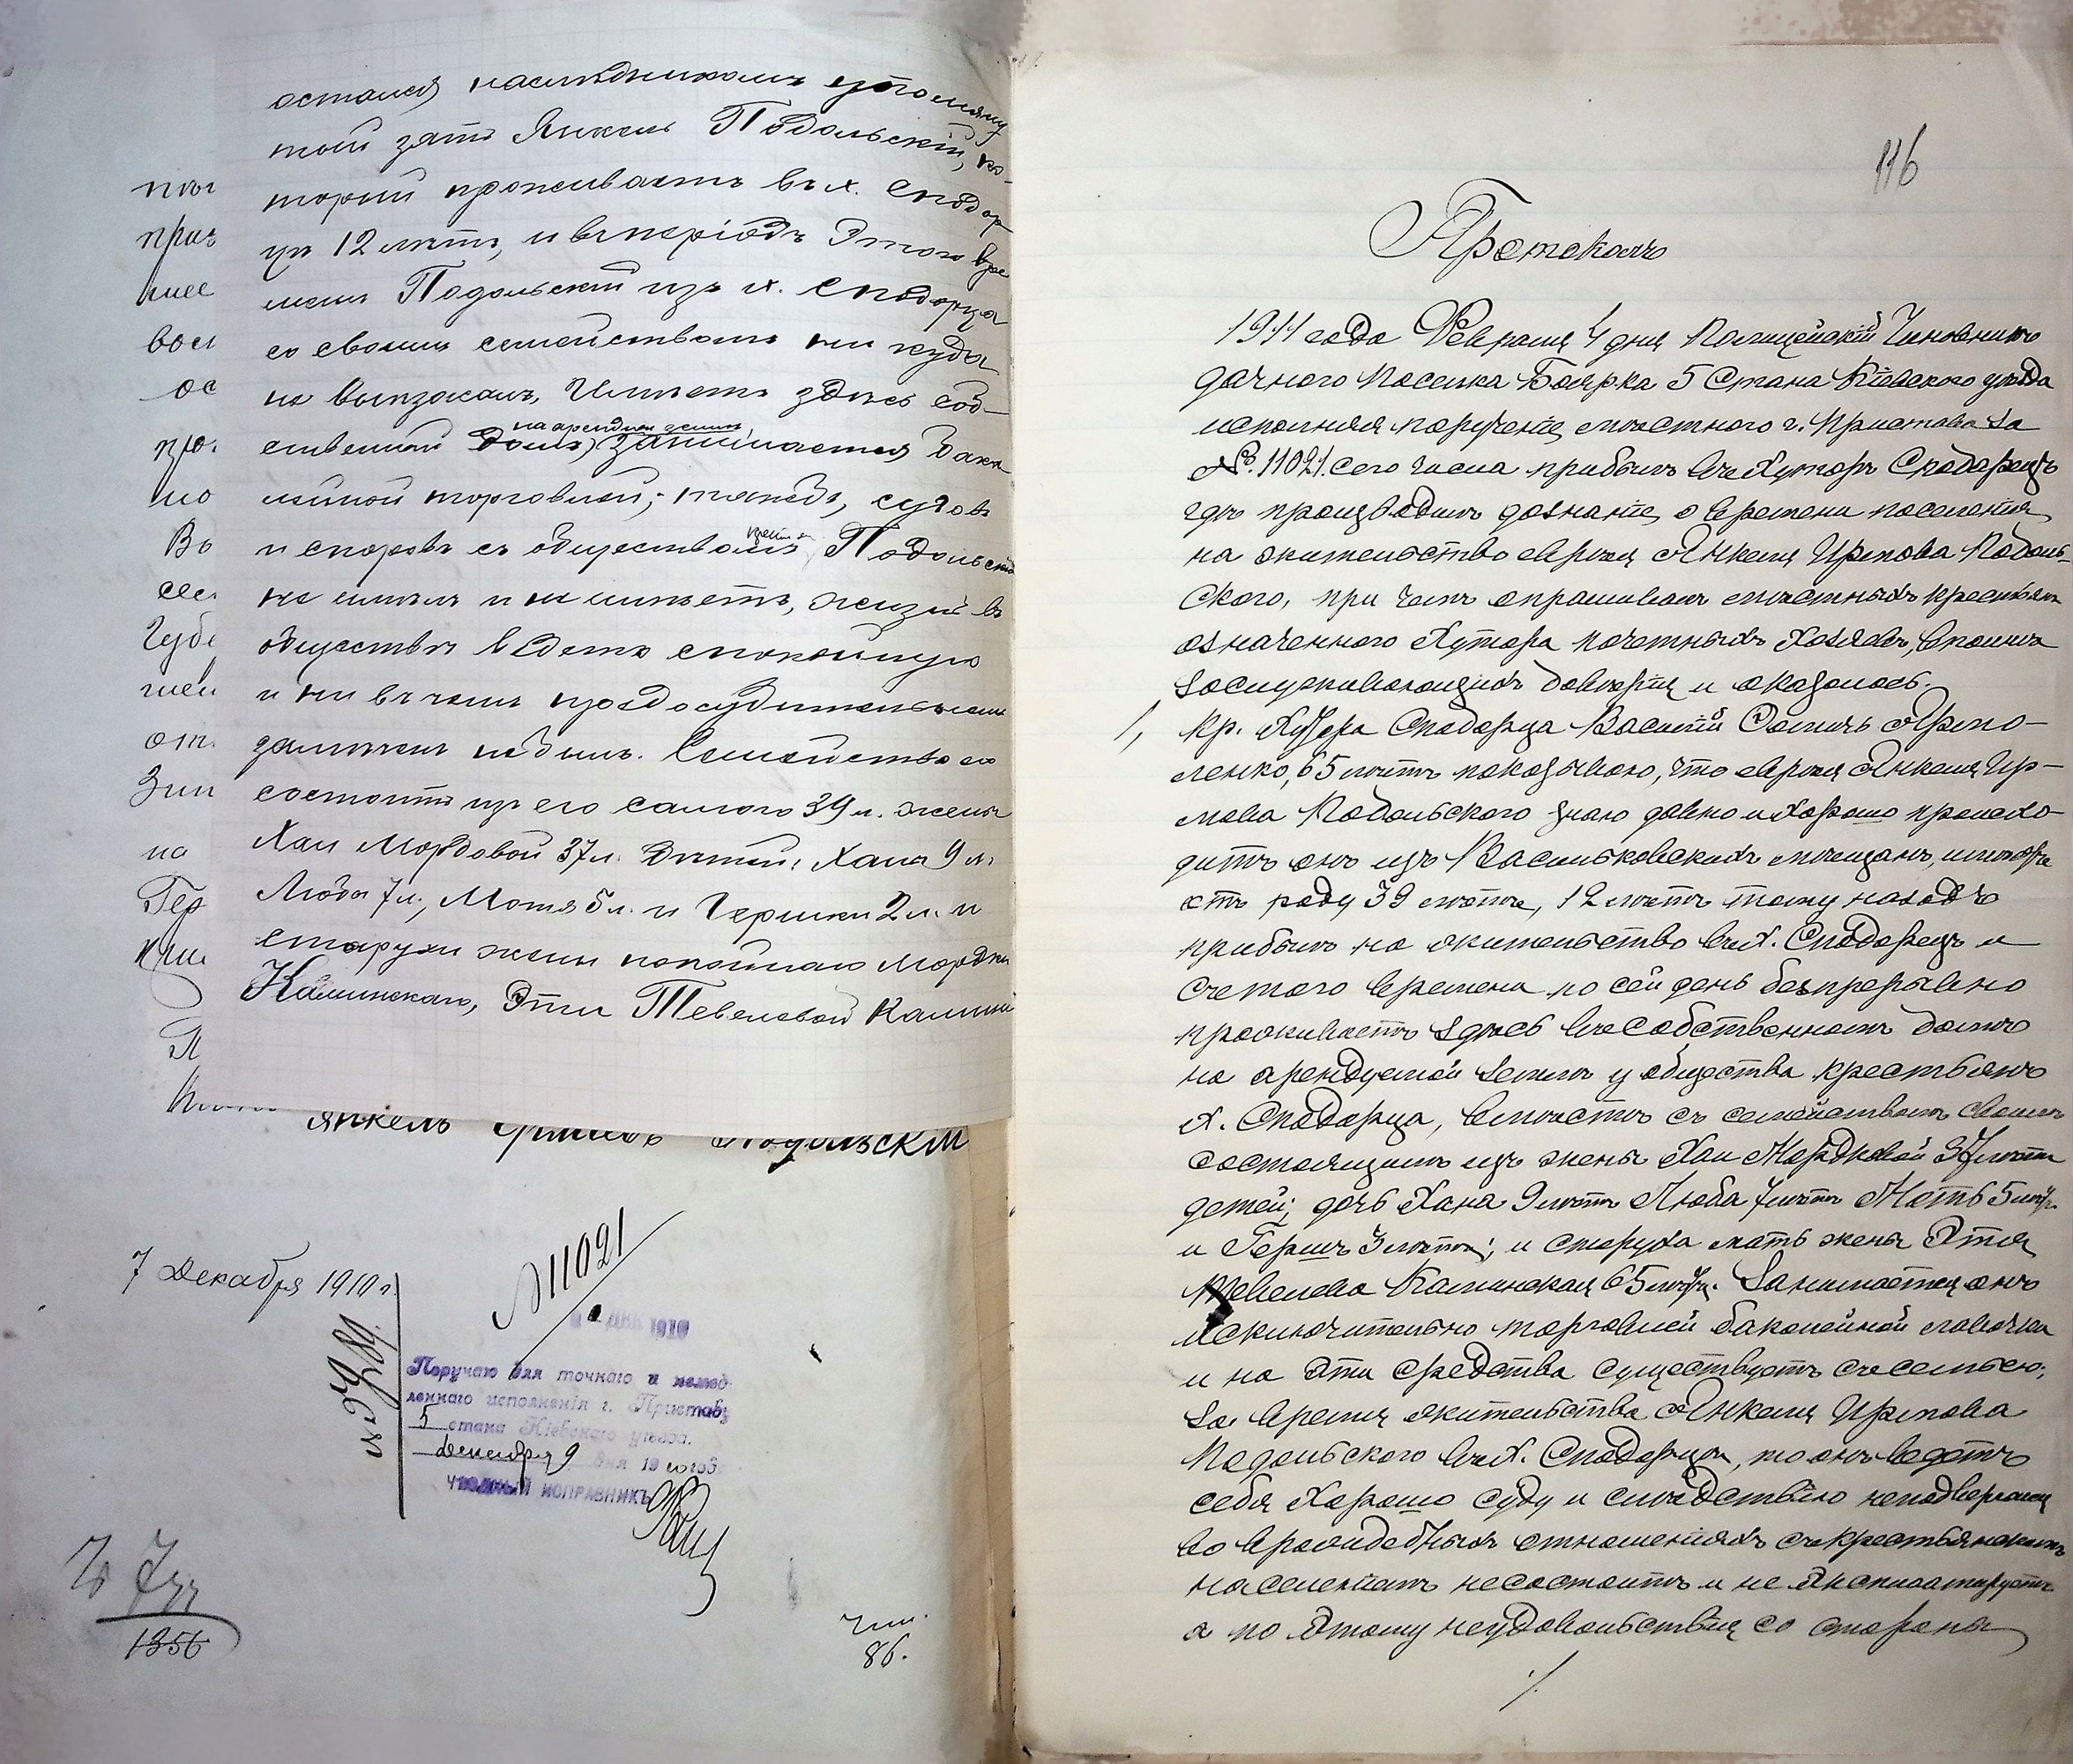 остался наслѣдникомъ упомяну
тый зять Янкель Подольскій, ко-
торый проживаетъ въ х. Сподар
цѣ 12 лѣтъ, и въ періодъ этого вре
мени Подольскій изъ х. Сподарца
со своимъ семействомъ ни куда
не выѣзжалъ, Имѣетъ здѣсь соб-
на арендной землѣ
ственный домъ, занимается бака
лейной торговлей; тяжбъ, судовъ
и споровъ съ обществомъ Подольскій
не имѣлъ и не имѣетъ, жизнь въ
обществѣ ведетъ спокойную
и ни въ чемъ предосудительномъ
замѣченъ не былъ. Семейство его
состоитъ изъ его самого 39 л. жены
Хаи Мордковой 37 л. Дѣтей: Хана 9 л.
Люба 7 л., Мотя 5 л. и Гершки 2 л. и
старухи жены покойнаго Мордки
Калинскаго, Эти Тевелевой Калин
пы
при
нее
вос
ос
про
но
Во
сел
Губе
ген
от
Зип
на
Гер
П
Янкель Подольскій
7 Декабря 1910 г.
№ 11021
ДЕК 1910
Поручаю для точнаго и немед-
леннаго исполненія г. Приставу
5 стана Кіевскаго уѣзда.
Декабря 9 дня 1910 год
УѢЗДНЫЙ ИСПРАВНИКЪ
1356
86.
116
Протоколъ
1911 года Февраля 4 дня Полицейскій Чиновникъ
дачнаго поселка Боярка 5 Стана Кіевского уѣзда
исполняя порученіе мѣстного г. Пристава за
№ 11021. сего числа прибылъ въ Хуторъ Сподарецъ
гдѣ производилъ дознаніе о времени поселенія
на жительство еврея Янкеля Ирмова Подоль-
ского, при чемъ опрашивалъ мѣстныхъ крестьянъ
означенного Хутора почетныхъ Хозяевъ, вполнѣ
заслуживающихъ довѣрія и оказалось.
1, Кр. Хутора Сподарца Василій Соминъ Ярмо-
ленко, 65 лѣтъ показываю, что еврея Янкеля Ир-
мова Подольского знаю давно и хорошо происхо-
дитъ онъ изъ Васильковскихъ мѣщанъ, имѣетъ
отъ роду 39 лѣтъ, 12 лѣтъ тому назадъ
прибылъ на жительство въ х. Сподарецъ и
съ того времени по сей день безпрерывно
проживаетъ здѣсь въ собственномъ домѣ
на арендуемой землѣ у общества крестьянъ
х. Сподарца, вмѣстѣ съ семействомъ своимъ
состоящимъ изъ жены Хаи Мордковой 37 лѣтъ
детей; дочь Хана 9 лѣтъ Люба 7 лѣтъ Моть 5 лѣтъ
и Гершъ 3 лѣтъ; и старуха мать жены Этя
Тевелева Калинская 65 лѣтъ. Занимается онъ
исключительно торговлей бакалейной лавочки
и на эти средства существуетъ съ семьею;
за время жительства Янкеля Ирмова
Подольского въ х. Сподарцѣ, то онъ ведетъ
себя хорошо суду и слѣдствію неподвергался
во враждебныхъ отношеніяхъ съ крестьянскимъ
населеніемъ несостоитъ и не эксплоатируетъ
а по этому неудовольствія со стороны
./.